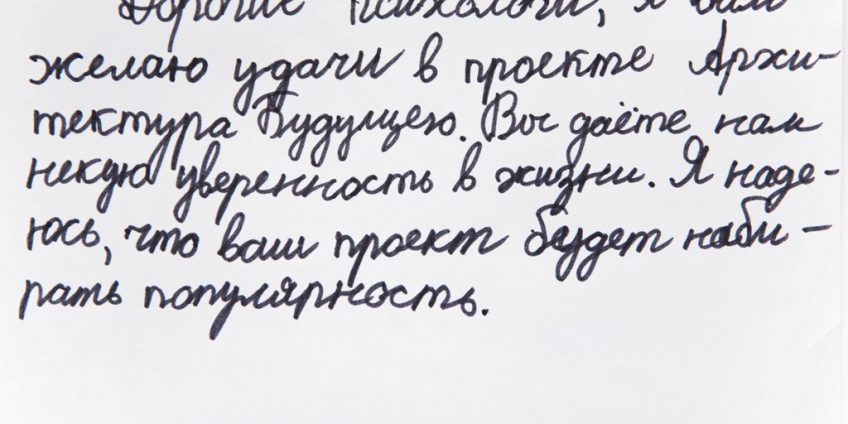 Дорогие Психологи, я вам
желаю удачи в проекте Архи-
тектура Будущего. Вы даёте нам
некую уверенность в жизни. Я наде-
юсь, что ваш проект будет наби-
рать популярность.